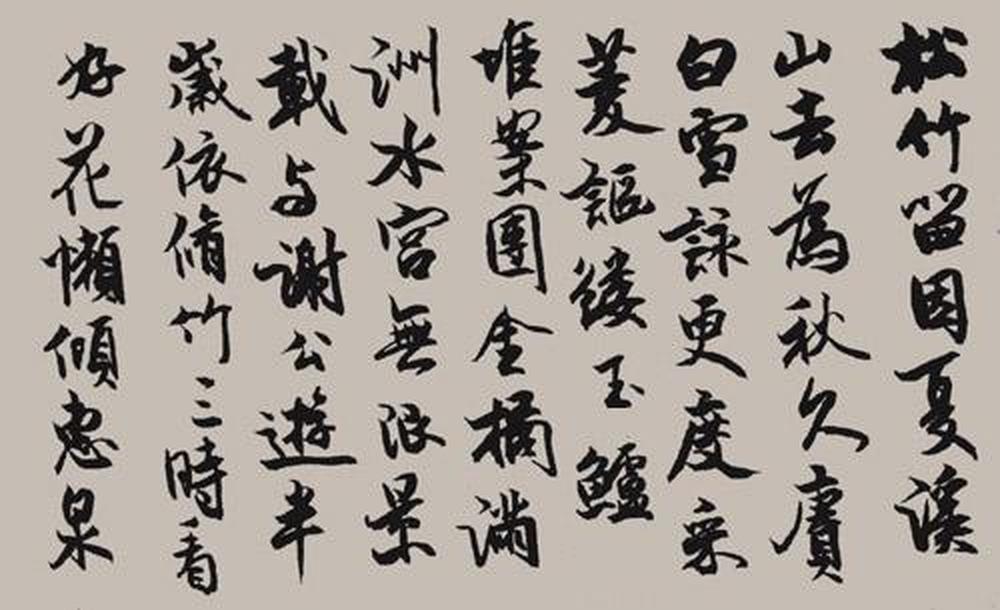 松竹留因夏溪
山去為秋久賡
白雪詠更度采
菱謳縷玉鱸
堆案團金橘滿
洲水宮無限景
載与謝公遊半
歲依脩竹三時看
好花懶傾惠泉